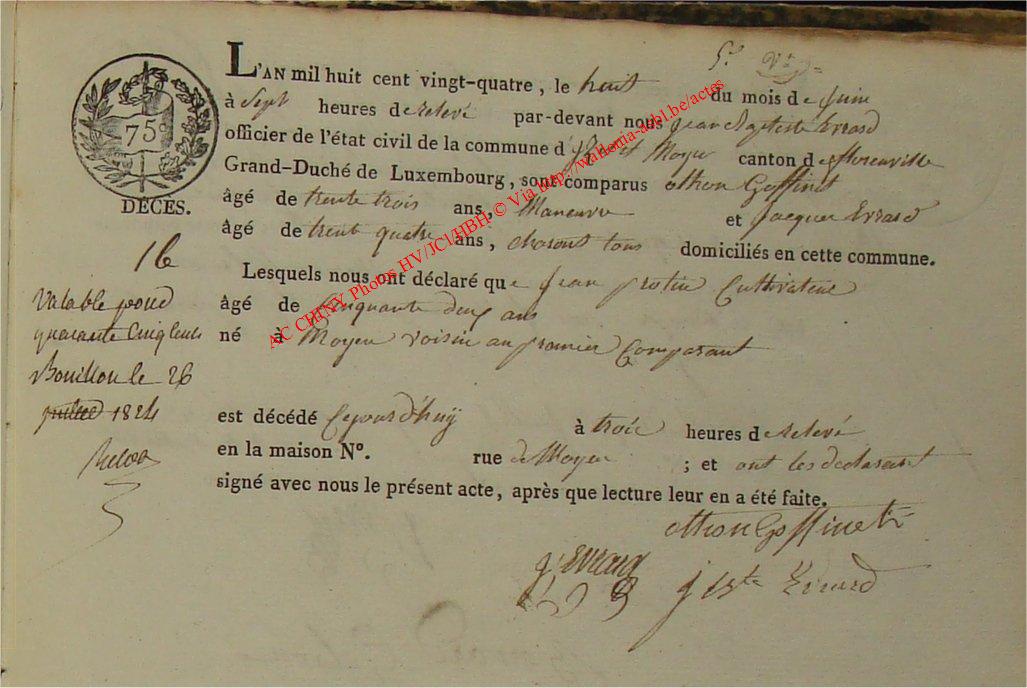 5e Vo
L'AN mil huit cent vingt-quatre, le huit du mois de Juin
à Sept heures de relevé par-devant nous Jean Baptiste Evrard
officier de l'état civil de la commune d' et Moyen canton de florenville
Grand-Duché de Luxembourg, sont comparus othon Goffinet
âgé de trente trois ans, Maneuvre et Jacques Evrard
âgé de trent quatre ans, tous domiciliés en cette commune.
Lesquels nous ont déclaré que Jean protin Cultivateur
âgé de Cinquante deux ans
né à Moyen voisin au premier Comparant
est décédé Cejourd'huy à trois heures de relevé
en la maison No. rue de Moyen ; et ont les declarant
signé avec nous le présent acte, après que lecture leur en a été faite.
othon Goffinet
J Evrard
J Bte Evrard
75
DÉCÈS.
16
Valable pour
quarante Cinq Cents
Bouillon le 26
1824
AC CHINY Photos HV/JCl/HBH © Via http://wallonia-asbl.be/actes